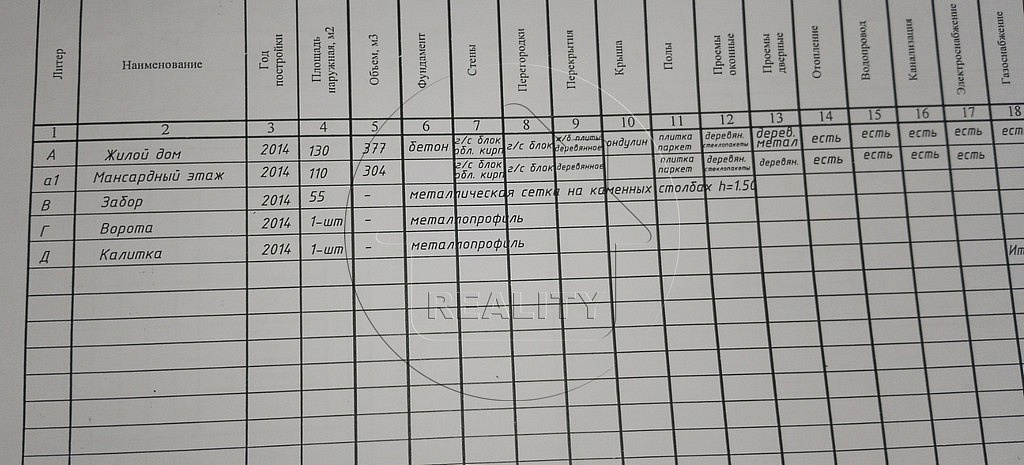 Литер Наименование Год постройки Площадь наружная, м2 Объем, м3 Фундамент Стены Перегородки Перекрытия Крыша Полы Проемы оконные Проемы дверные Отопление Водопровод Канализация Электроснабжение Газоснабжение
1 2 3 4 5 6 7 8 9 10 11 12 13 14 15 16 17 18
А Жилой дом 2014 130 377 бетон г/с блок обл. кирп г/с блок ж/б плиты деревянное ондулин плитка паркет деревян. стеклопакеты дерев. метал есть есть есть есть ест
а1 Мансардный этаж 2014 110 304 г/с блок обл. кирп г/с блок деревянное плитка паркет деревян. стеклопакеты деревян. есть есть есть есть
В Забор 2014 55 - металлическая сетка на каменных столбах h=1.50
Г Ворота 2014 1-шт - металлопрофиль
Д Калитка 2014 1-шт - металлопрофиль
Ит
REALITY